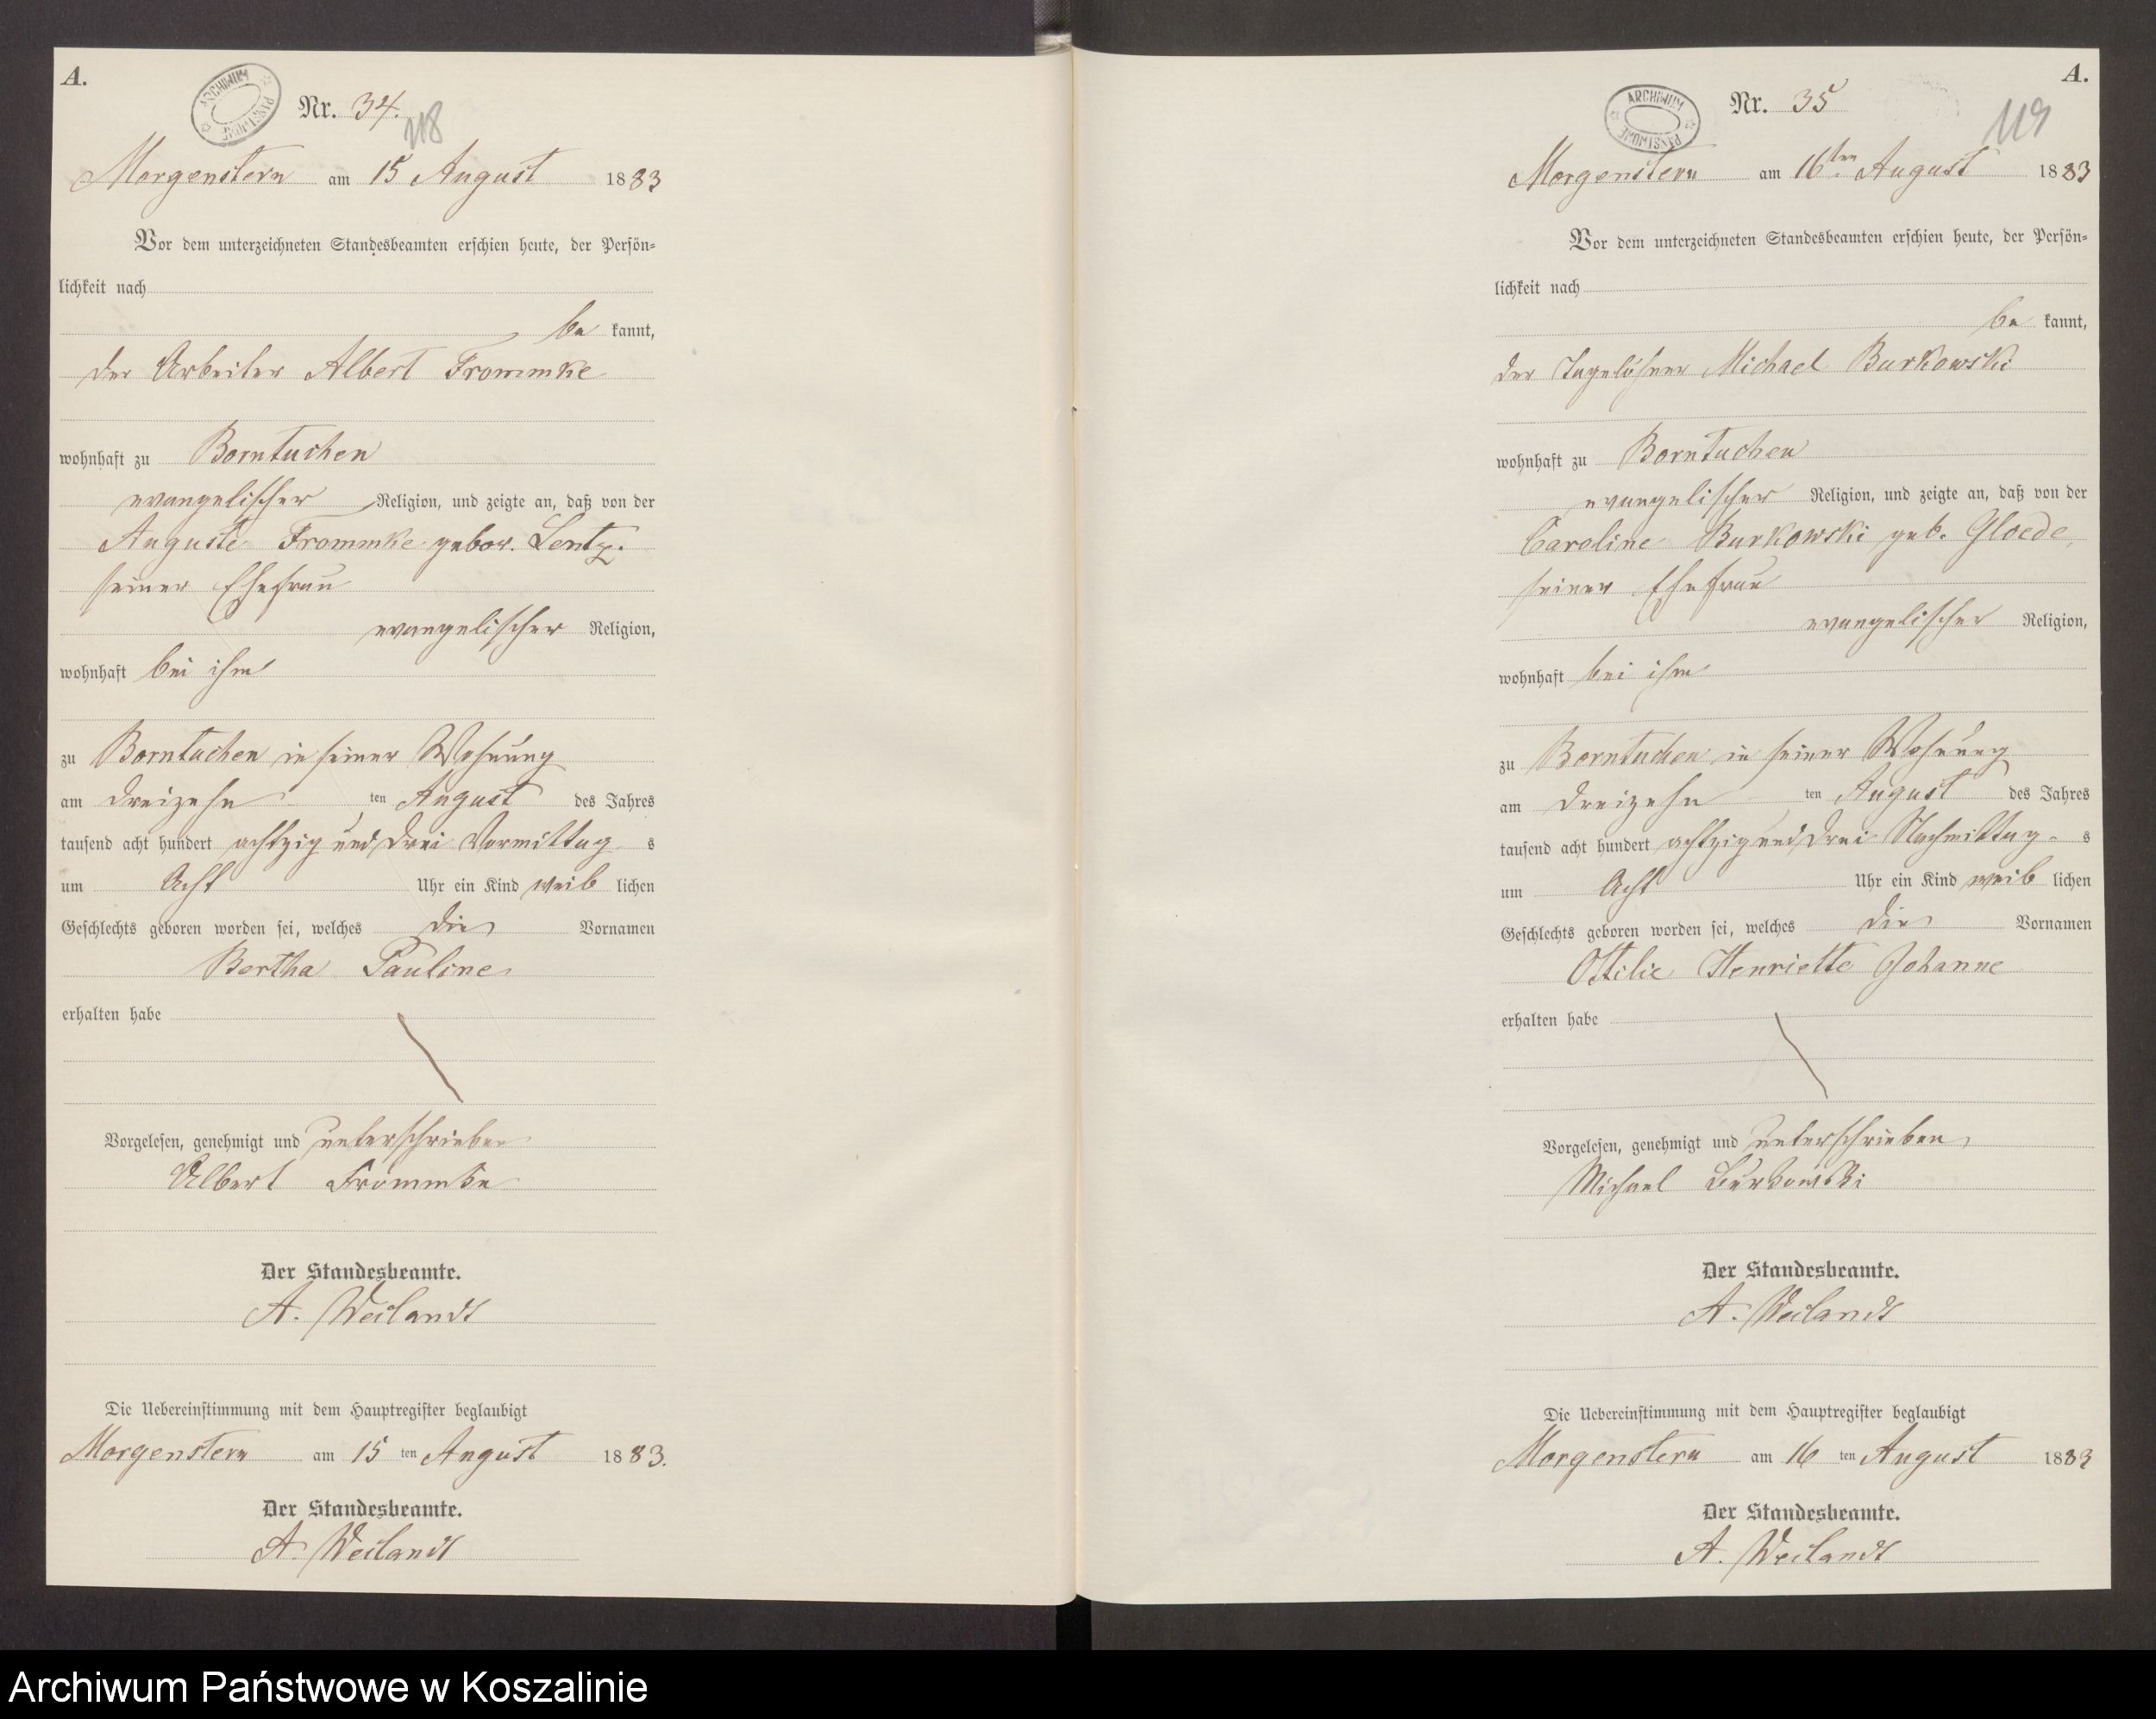 A.
ARCHIWUM PAŃSTWOWE
Nr. 34.
118
Morgenstern am 15 August 1883
Vor dem unterzeichneten Standesbeamten erschien heute, der Persön-
lichkeit nach
be kannt,
der Arbeiter Albert Frommke
wohnhaft zu Borntuchen
evangelischer Religion, und zeigte an, daß von der
Auguste Frommke gebor. Lentz.
seiner Ehefrau
evangelischer Religion,
wohnhaft bei ihm
zu Borntuchen in seiner Wohnung
am dreizehn ten August des Jahres
tausend acht hundert achtzig und drei Vormittag s
um Acht Uhr ein Kind weib lichen
Geschlechts geboren worden sei, welches die Vornamen
Bertha Pauline
erhalten habe
Vorgelesen, genehmigt und unterschrieben
Albert Frommke
Der Standesbeamte.
A. Weilandt
Die Uebereinstimmung mit dem Hauptregister beglaubigt
Morgenstern am 15 ten August 1883.
Der Standesbeamte.
A. Weilandt
A.
ARCHIWUM PAŃSTWOWE
Nr. 35
119
Morgenstern am 16ten August 1883
Vor dem unterzeichneten Standesbeamten erschien heute, der Persön-
lichkeit nach
be kannt,
der Tagelöhner Michael Burkowski
wohnhaft zu Borntuchen
evangelischer Religion, und zeigte an, daß von der
Caroline Burkowski geb. Gloede,
seiner Ehefrau
evangelischer Religion,
wohnhaft bei ihm
zu Borntuchen in seiner Wohnung
am dreizehn ten August des Jahres
tausend acht hundert achtzig und drei Nachmittag s
um Acht Uhr ein Kind weib lichen
Geschlechts geboren worden sei, welches die Vornamen
Ottilie Henriette Johanne
erhalten habe
Vorgelesen, genehmigt und unterschrieben
Michael Burkowski
Der Standesbeamte.
A. Weilandt
Die Uebereinstimmung mit dem Hauptregister beglaubigt
Morgenstern am 16 ten August 1883
Der Standesbeamte.
A. Weilandt
Archiwum Państwowe w Koszalinie